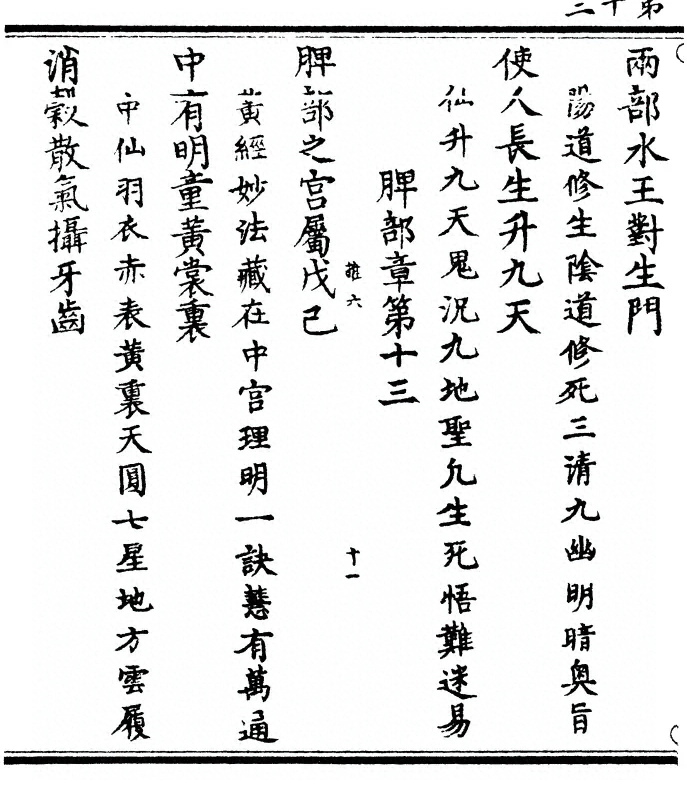 兩部水王對生門
陽道修生陰道修死三清九幽明暗奥旨
使人長生升九天
仙升九天鬼況九地聖凡生死悟難迷易
脾部章第十三
推六
十一
脾部之宫屬戊己
黃經妙法藏在中宫理明一訣慧有萬通
中有明童黃裳裏
中仙羽衣赤表黄裏天圓七星地方雲履
消穀散氣攝牙齒